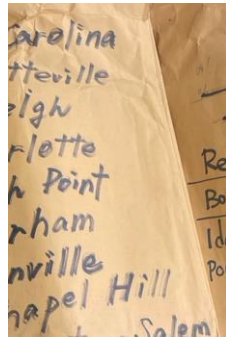 arolina
tteville
eigh
rlotte
h Point
rham
nville
hapel Hill
Salem
Re
Bo
Ida
Po